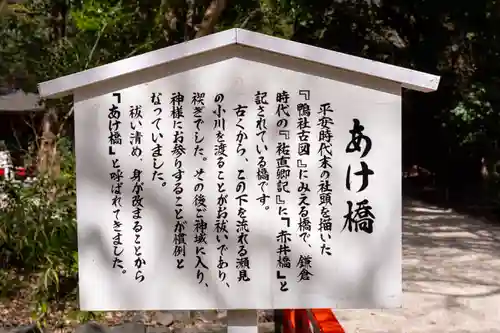 あけ橋
平安時代末の社頭を描いた
『鴨社古図』にみえる橋で、鎌倉
時代の『祐直卿記』に『赤井橋』と
記されている橋です。
古くから、この下を流れる瀬見
の小川を渡ることがお祓いであり、
禊ぎでした。その後ご神域に入り、
神様にお参りすることが慣例と
なっています。
祓い清め、身が改まることから
『あけ橋』と呼ばれてきました。